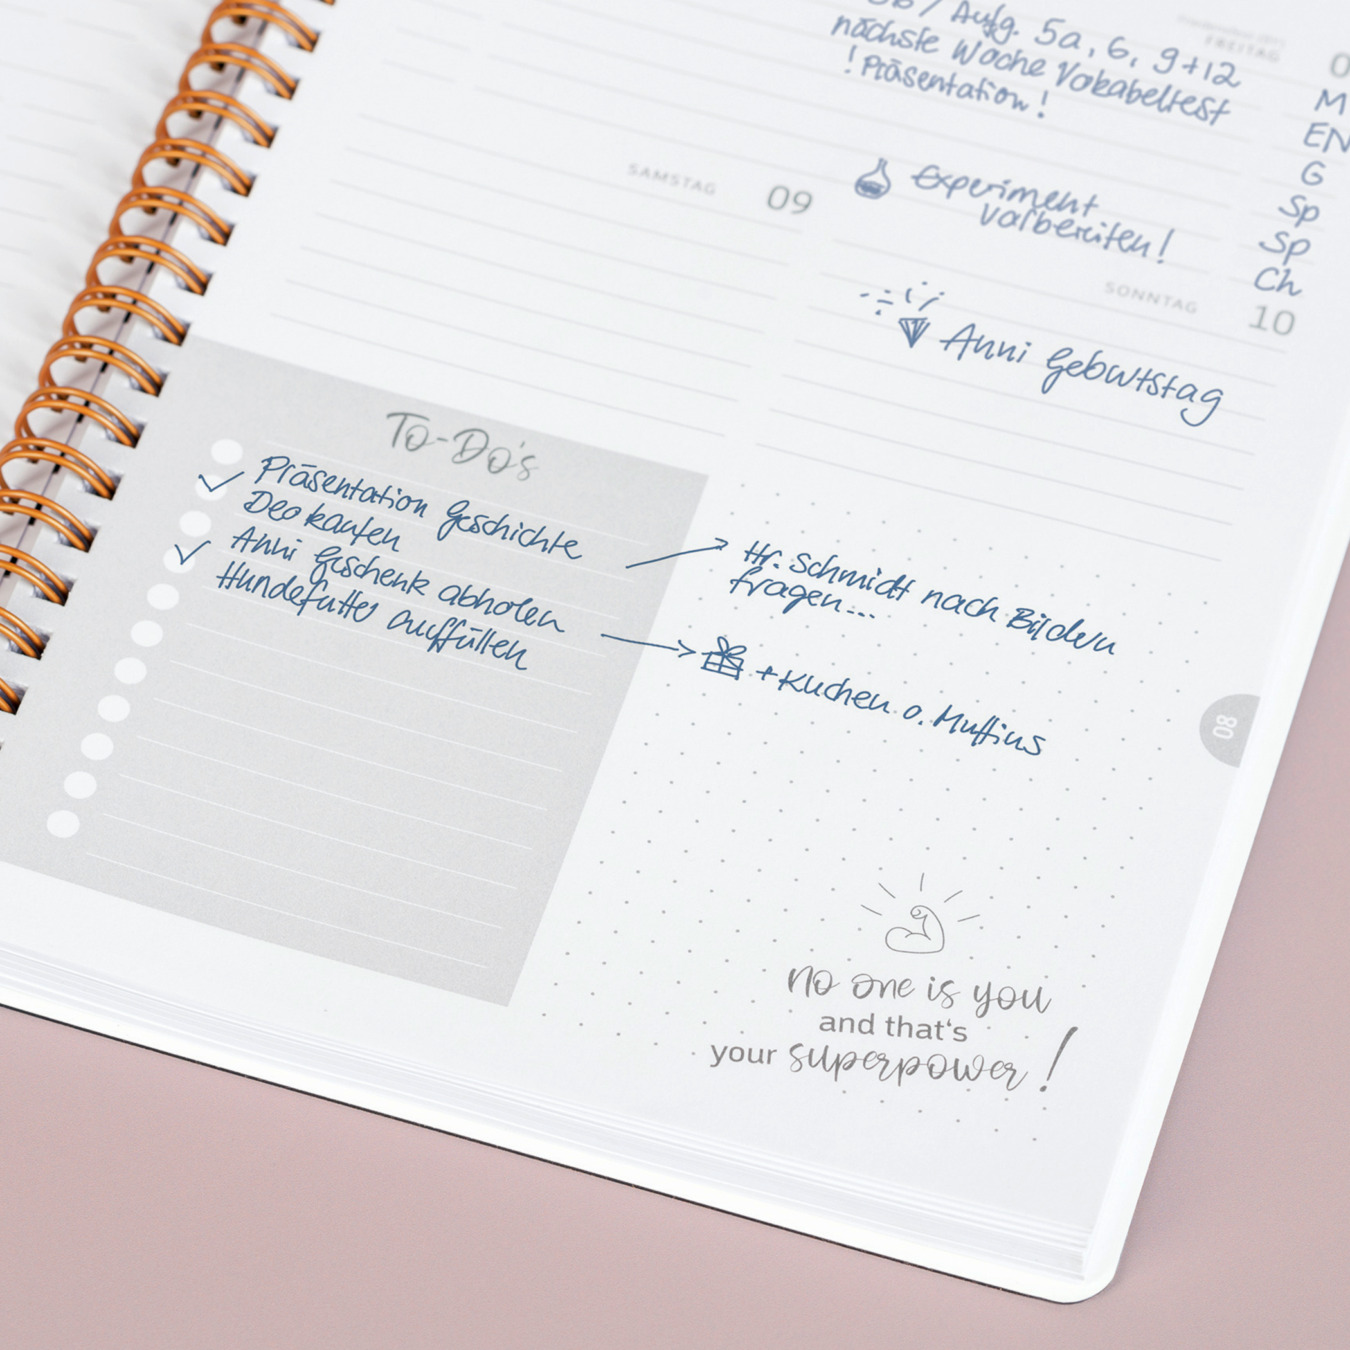 Aufg. 5a, 6, 9+12
nächste Woche Vokabeltest
! Präsentation !
FREITAG
M
EN
G
Sp
Sp
Ch
SAMSTAG 09
Experiment
vorbereiten!
SONNTAG 10
Anni Geburtstag
To-Do's
Präsentation Geschichte
Deo kaufen
Anni Geschenk abholen
Hundefutter auffüllen
Hr. Schmidt nach Bildern
fragen...
+ Kuchen o. Muffins
08
no one is you
and that's
your superpower!